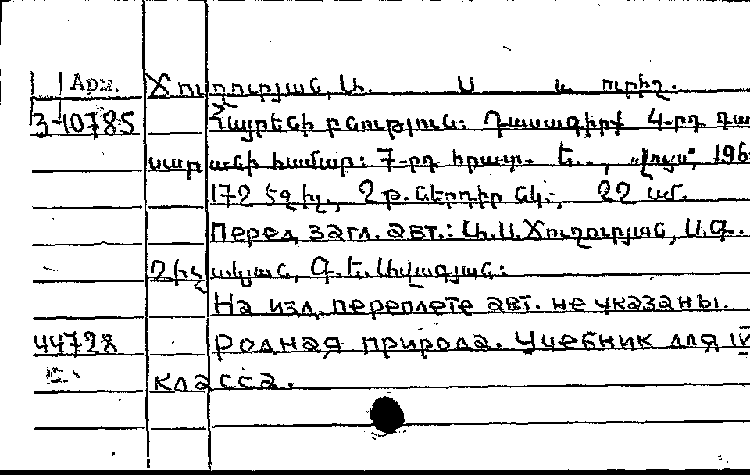 Арм. Խուդուրյան, Ա. Ա և ուրիշ.
3-10785 Հայրենի բնություն: Դասագիրք 4-րդ դա
սարանի համար: 7-րդ հրատ. Ե., „Լույս”, 196
172 էջ իլ., 2 թ. ներդիր նկ., 22 սմ.
Перед загл. авт.: Ա.Ա.Խուդուրյան, Ա.Գ.
Գ.Ե.Ավագյան:
На изд. переплете авт. не указаны.
44728 Родная природа. Учебник для IV
класса.